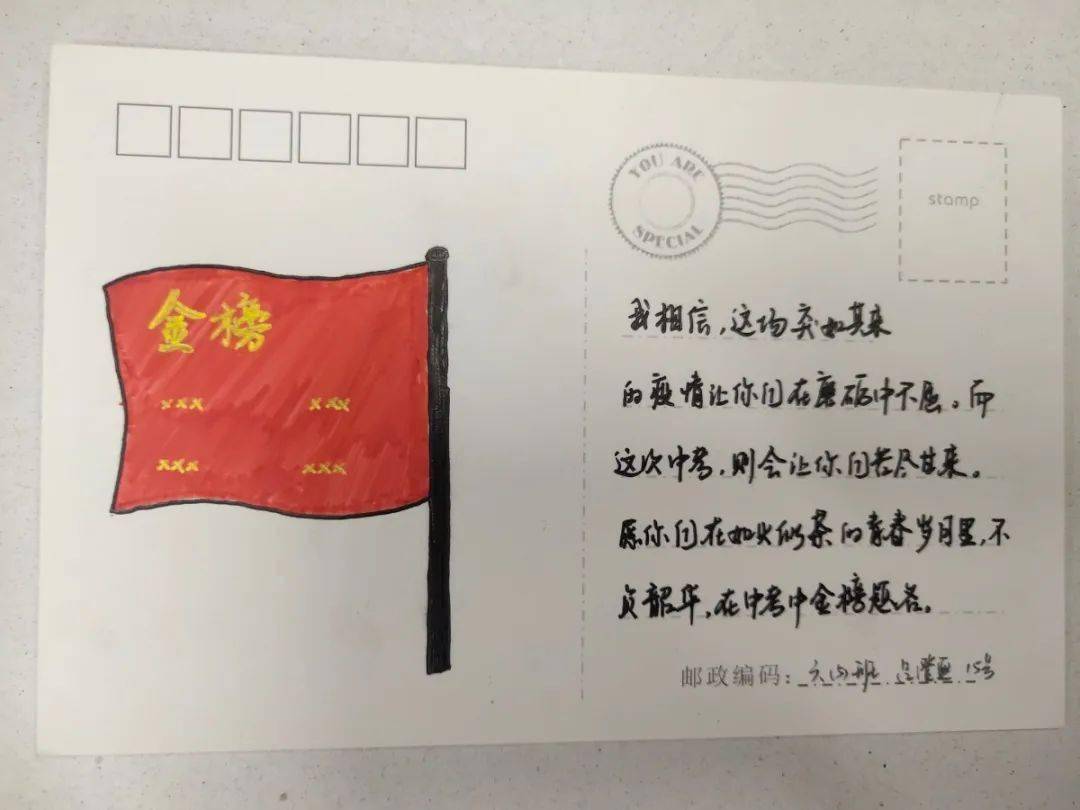 金榜
××× ×××
××× ×××
YOU ARE
SPECIAL
stamp
我相信,这场突如其来
的疫情让你们在磨砺中不屈。而
这次中考,则会让你们苦尽甘来。
愿你们在如火似荼的青春岁月里,不
负韶华,在中考中金榜题名。
邮政编码: 班 15号